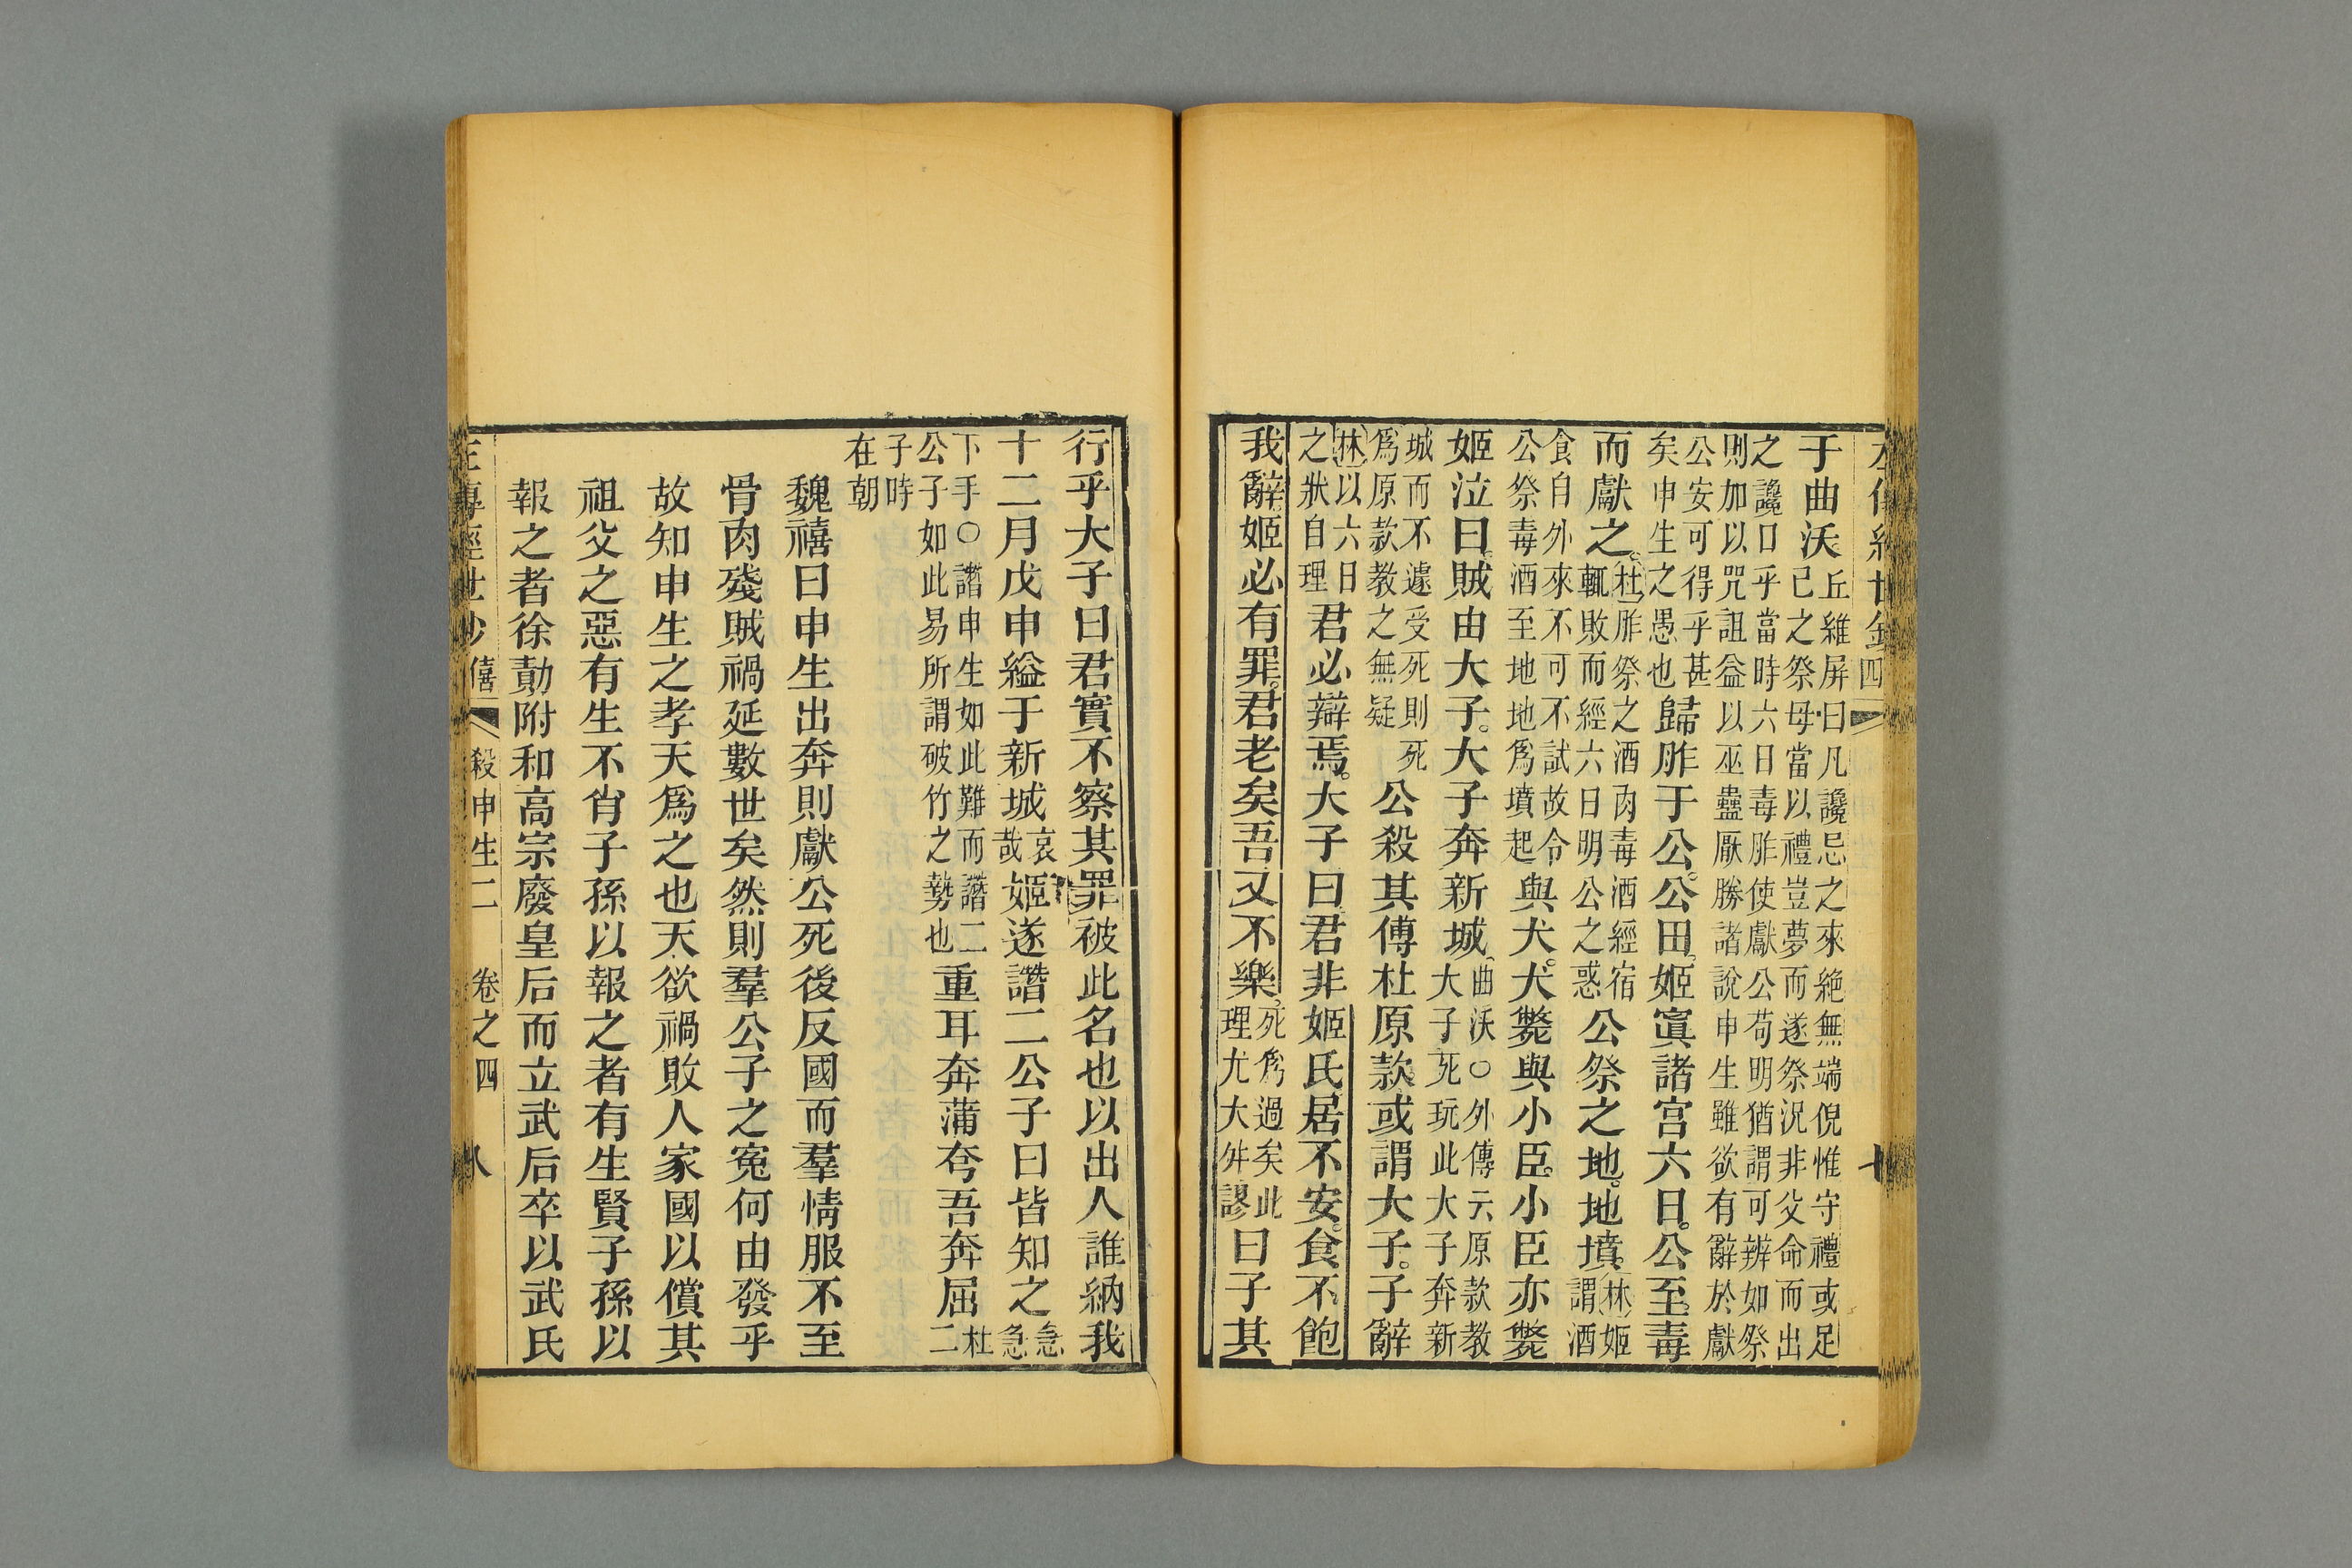 左傳經世鈔 四
于曲沃丘維屏曰凡讒忌之來絶無端倪惟守禮或足已之祭母當以禮豈夢而遂祭況非父命而出
之讒口乎當時六日毒胙使獻公苟明猶謂可辨如祭則加以咒詛益以巫蠱厭勝諸說申生雖欲有辭於獻
公安可得乎甚矣申生之愚也歸胙于公。公田。姬寘諸宮六日。公至。毒
而獻之。杜胙祭之酒肉毒酒經宿輒敗而經六日明公之惑公祭之地。地墳。林姬謂酒
食自外來不可不試故令公祭毒酒至地地爲墳起與犬。犬斃與小臣。小臣亦斃
姬泣曰。賊由大子。大子奔新城。曲沃○外傳云原款教大子死玩此大子奔新
城而不遽受死則死爲原款教之無疑公殺其傅杜原款。或謂大子。子辭
林以六日之狀自理君必辯焉。大子曰君非姬氏。居不安。食不飽
我辭。姬必有罪。君老矣吾又不樂。死爲過矣此理尤大舛謬曰子其
行乎大子曰君實不察其罪被此名也以出人誰納我
十二月戊申縊于新城哀哉姬遂譖二公子曰皆知之急急
下手○譖申生如此難而譖二公子如此易所謂破竹之勢也重耳奔蒲夸吾奔屈杜二
子時在朝
魏禧曰申生出奔則獻公死後反國而羣情服不至
骨肉殘賊禍延數世矣然則羣公子之寃何由發乎
故知申生之孝天爲之也天欲禍敗人家國以償其
祖父之惡有生不肖子孫以報之者有生賢子孫以
報之者徐勣附和高宗廢皇后而立武后卒以武氏
左傳經世鈔 僖 殺申生二 卷之四 八